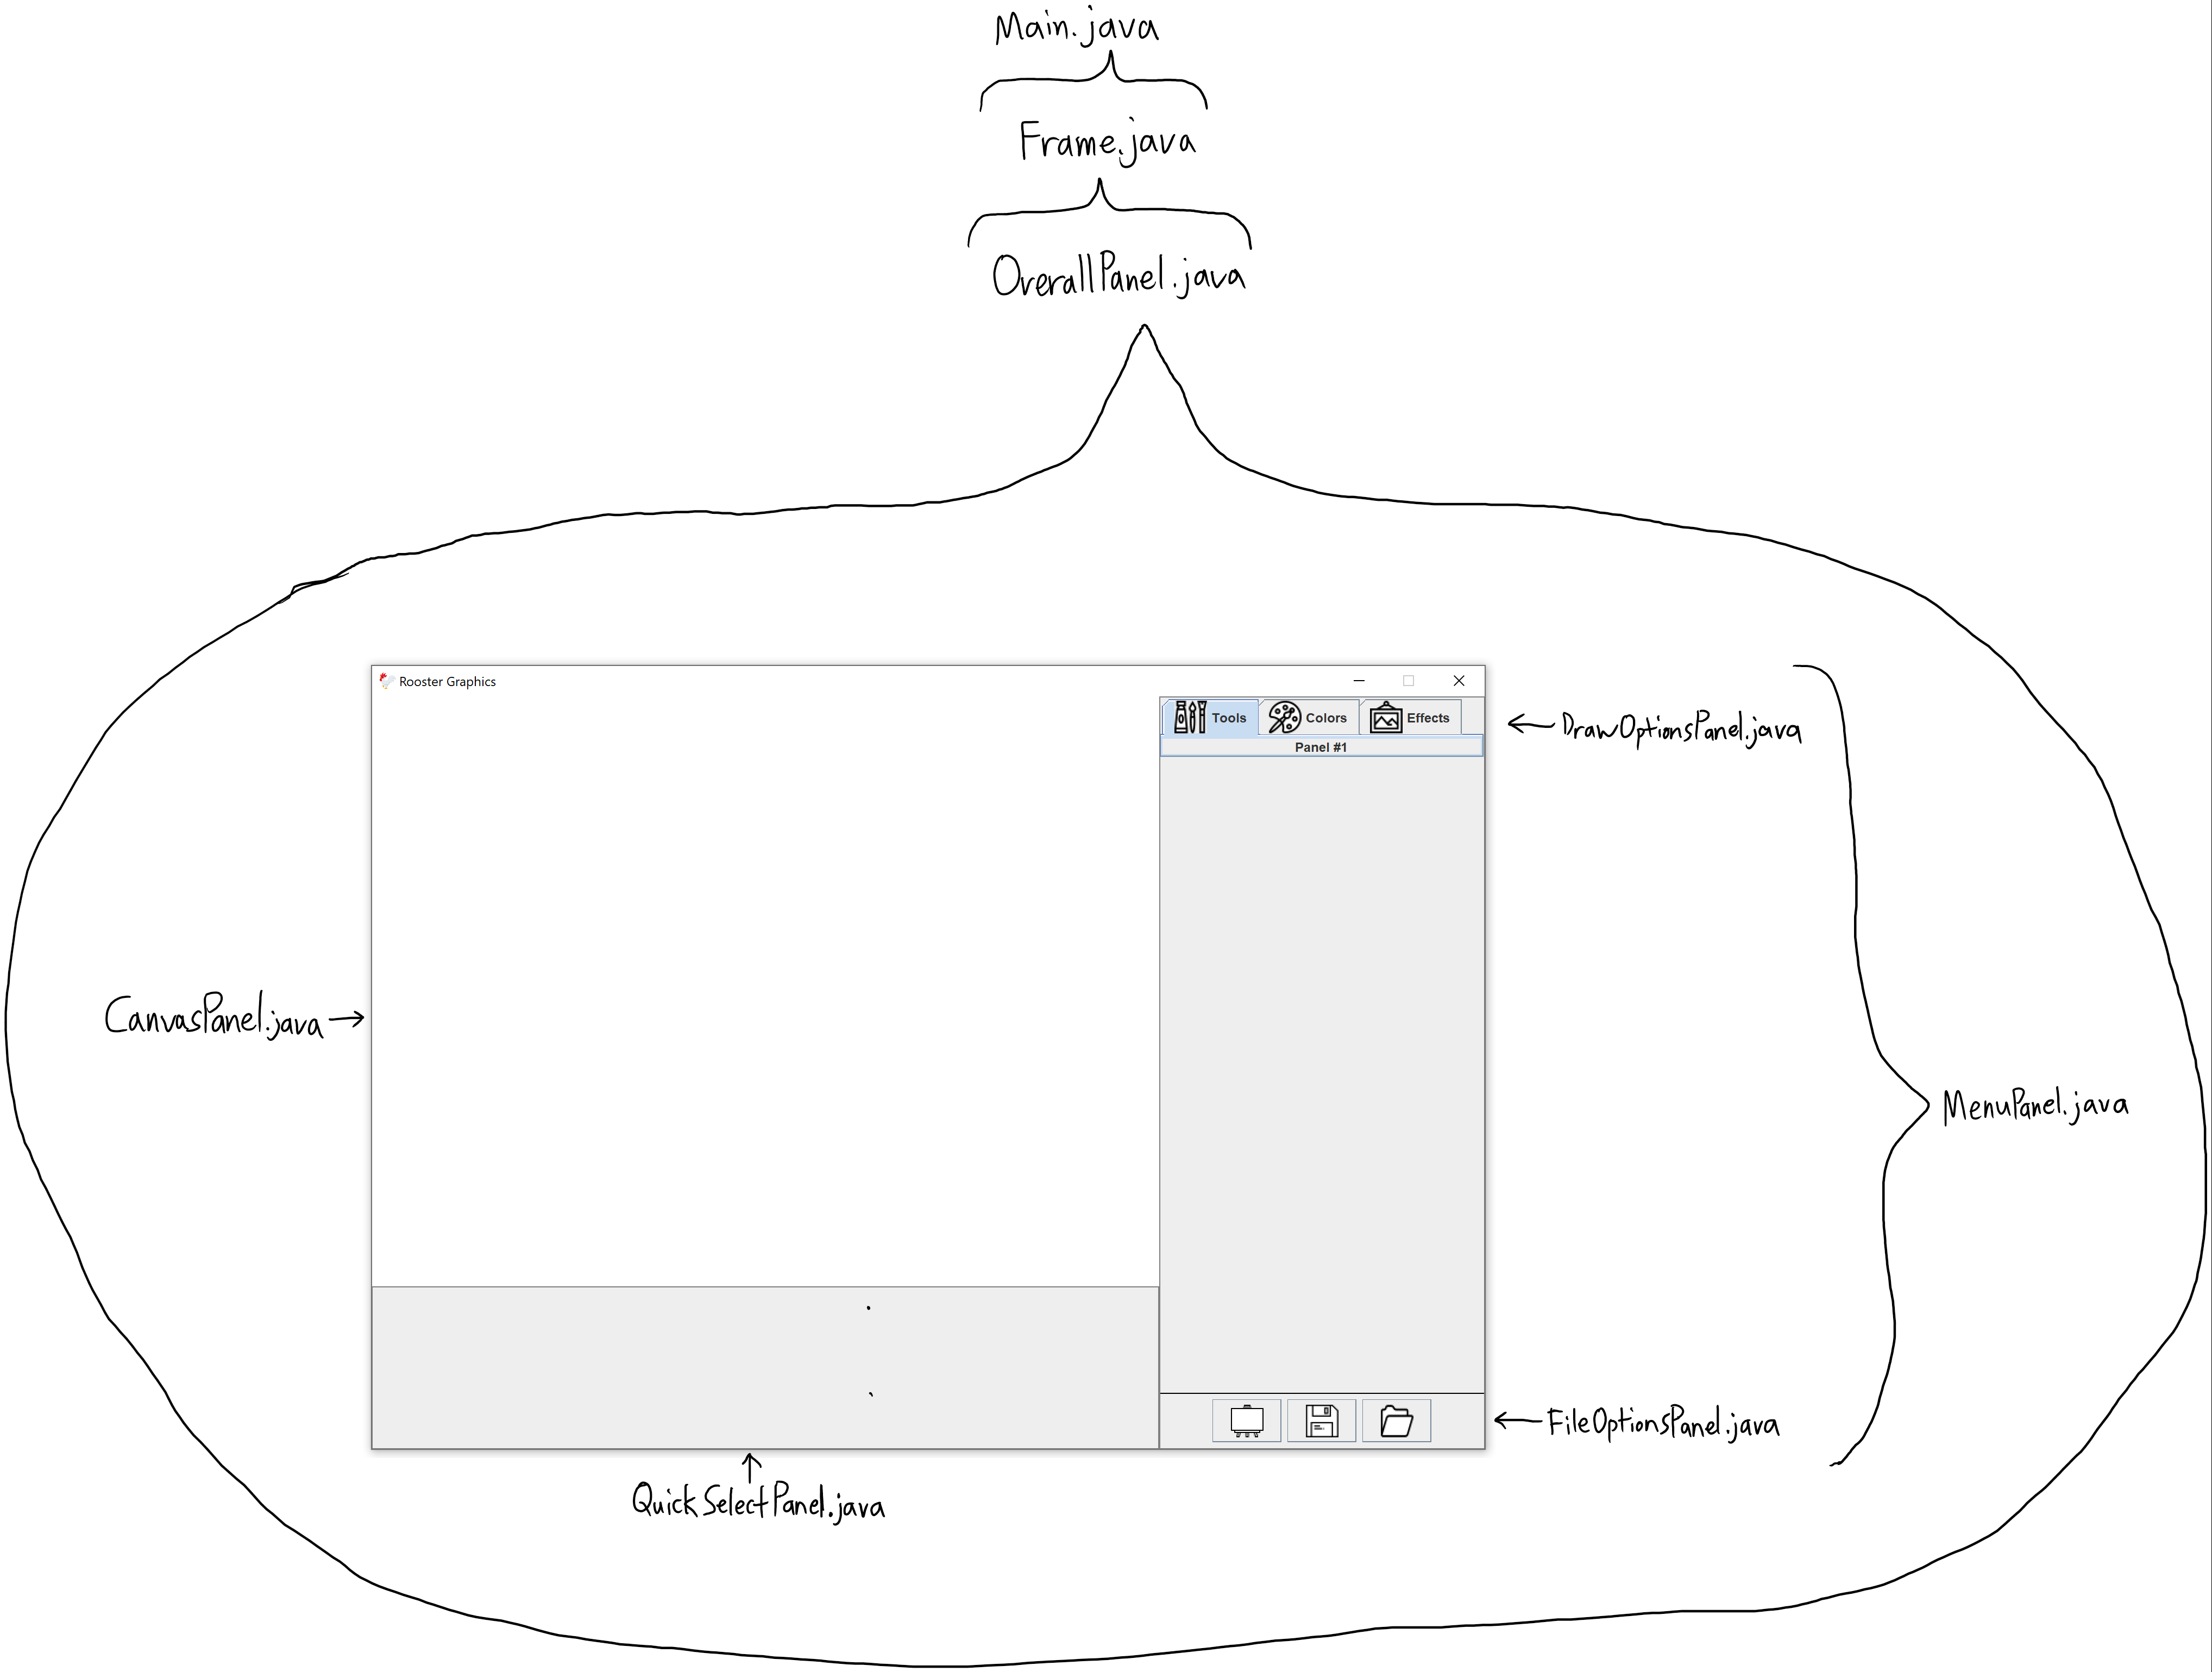 Main.java
Frame.java
OverallPanel.java
Rooster Graphics
Tools Colors Effects
DrawOptionsPanel.java
Panel #1
CanvasPanel.java
MenuPanel.java
FileOptionsPanel.java
QuickSelectPanel.java